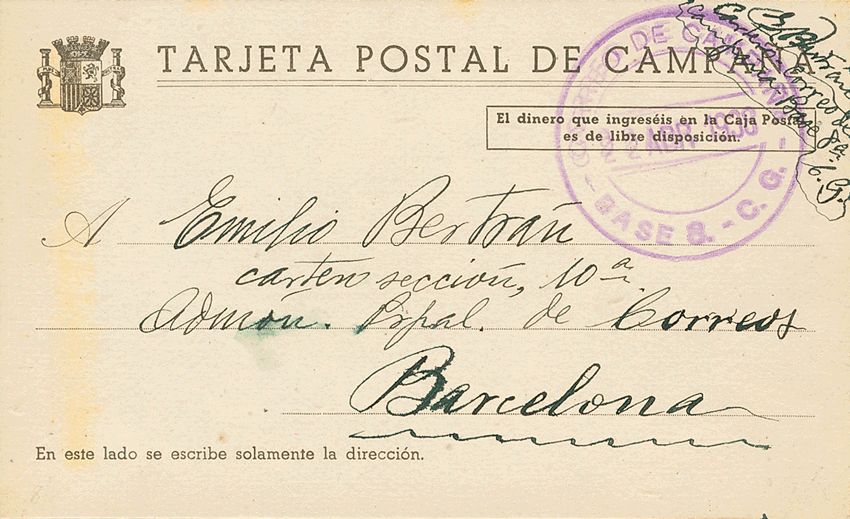 TARJETA POSTAL DE CAMPAÑA
El dinero que ingreséis en la Caja Postal
es de libre disposición.
CORREO DE CAMPAÑA
2 ABR. 1938
BASE 8. - C. G. -
Correo de
Base 8ª
C. G.
A Emilio Bertrán
cartero sección, 10ª
Admón. Prpal. de Correos
Barcelona
En este lado se escribe solamente la dirección.